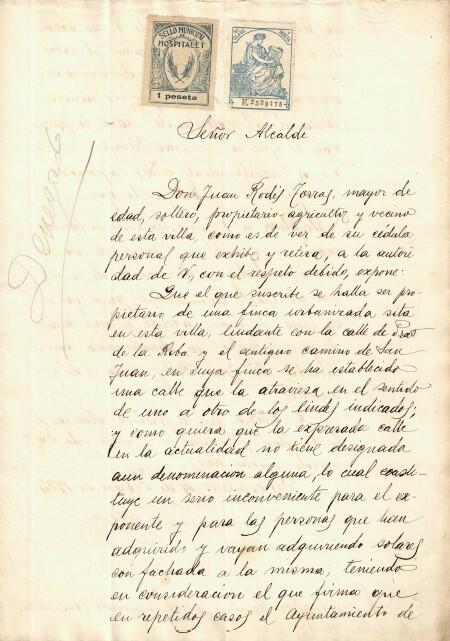 SELLO MUNICIPAL
HOSPITALET
1 peseta
E.3539175
Señor Alcalde
Don Juan Rodés Torras, mayor de
edad, soltero, propietario-agricultor y vecino
de esta villa, como es de ver de su cédula
personal que exhibe y retira, a la autori
dad de V., con el respeto debido, expone:
Que el que suscribe se halla ser pro-
pietario de una finca urbanizada sita
en esta villa, lindante con la calle de Prat
de la Riba y el antiguo camino de San
Juan, en cuya finca se ha establecido
una calle que la atraviesa en el sentido
de uno a otro de los lindes indicados;
y como quiera que la expresada calle
en la actualidad no tiene designada
aun denominacion alguna, lo cual consti-
tuye un serio inconveniente para el ex-
ponente y para las personas que han
adquirido y vayan adquiriendo solares
con fachada a la misma, teniendo
en consideracion el que firma que
en repetidos casos el Ayuntamiento de